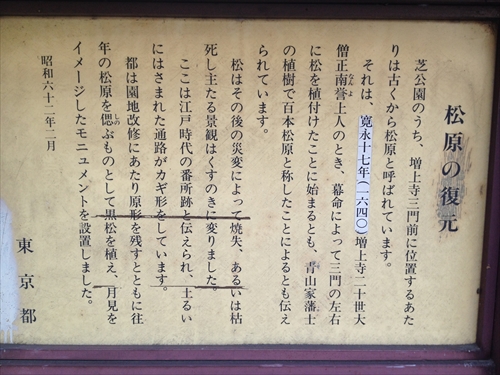 松原の復元
芝公園のうち、増上寺三門前に位置するあた
りは古くから松原と呼ばれています。
それは、寛永十七年(一六四〇)増上寺二十世大
僧正南誉上人のとき、幕命によって三門の左右
なよ
に松を植付けたことに始まるとも、青山家藩士
の植樹で百本松原と称したことによるとも伝え
られています。
松はその後の災変によって焼失、あるいは枯
死し主たる景観はくすのきに変りました。
ここは江戸時代の番所跡と伝えられ、土るい
にはさまれた通路がカギ形をしています。
都は園地改修にあたり原形を残すとともに往
年の松原を偲ぶものとして黒松を植え、月見を
しの
イメージしたモニュメントを設置しました。
昭和六十二年二月
東京都